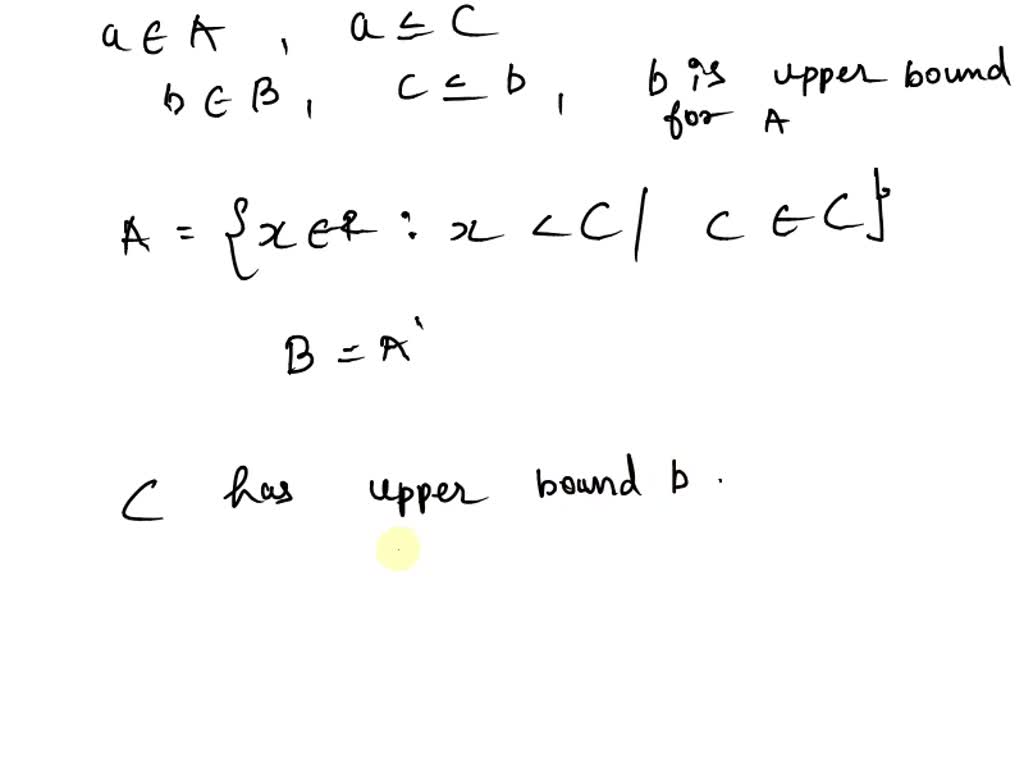 a ∈ A , a ≤ C
b ∈ B , C ≤ b , b is upper bound
for A
A = {x ∈ R : x < C | c ∈ C}
B = A'
C has upper bound b .